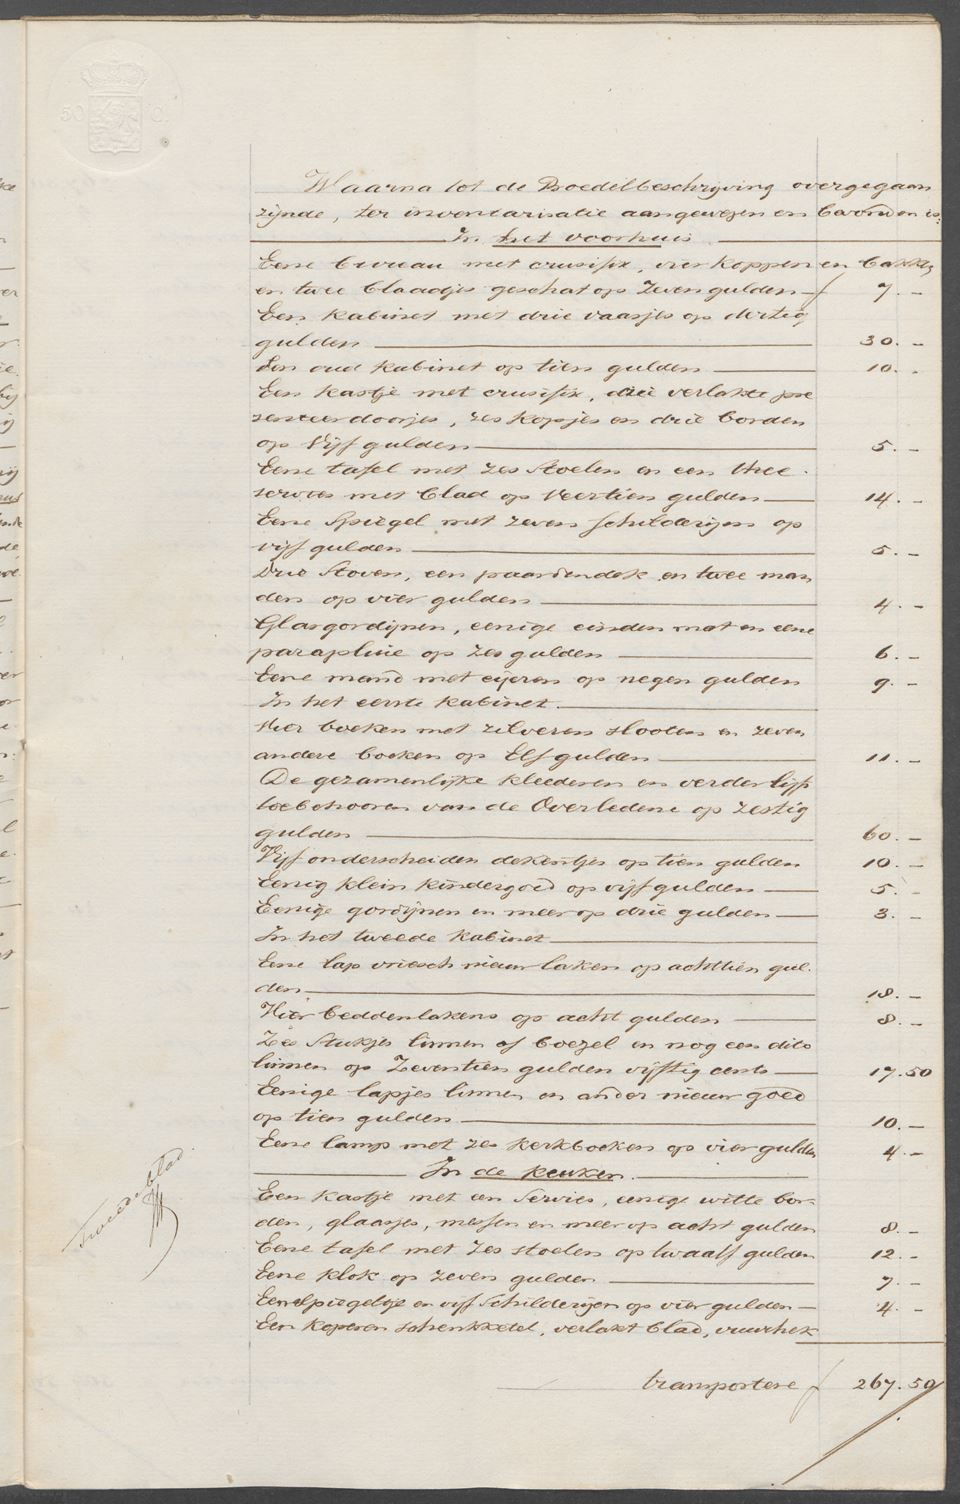 50 C.
Waarna tot de Boedelbeschrijving overgegaan
zijnde, ter inventarisatie aangewezen en bevonden is:
In het voorhuis
Eene bureau met crusifix, vier koppen en bakken
en twee blaadjes geschat op zeven gulden f 7. -
Een kabinet met drie vaasjes op dertig
gulden 30. -
Een oud kabinet op tien gulden 10. -
Een kastje met crusifix, drie verlakte pre
zenteerdoorjes, zes kopjes en drie borden
op Vijf gulden 5. -
Eene tafel met zes Stoelen en een thee-
servies met blad op veertien gulden 14. -
Eene Spiegel met zeven schilderijen op
vijf gulden 5. -
Drie Stoven, een paardendek en twee man
den op vier gulden 4. -
Glasgordijnen, eenige einden mat en eene
parapluie op zes gulden 6. -
Eene mand met eijeren op negen gulden 9. -
In het eerste kabinet.
Vier boeken met zilveren slooten en zeven
andere boeken op Elf gulden 11. -
De gezamenlijke kleederen en verder lijfs
toebehooren van de Overledene op zestig
gulden 60. -
Vijf onderscheiden dekentjes op tien gulden 10. -
Eenig klein kindergoed op vijf gulden 5. -
Eenige gordijnen en meer op drie gulden 3. -
In het tweede kabinet
Eene lap vriesch nieuw laken op achttien gul-
den 18. -
Vier beddenlakens op acht gulden 8. -
Zes Stukjes linnen of boezel en nog een dito
linnen op Zeventien gulden vijftig cents 17.50
Eenige lapjes linnen en ander nieuw goed
op tien gulden 10. -
Eene lamp met zes kerkboeken op vier gulden 4. -
In de keuken.
Een kastje met een Servies, eenige witte bor-
den, glaasjes, messen en meer op acht gulden 8. -
Eene tafel met zes stoelen op twaalf gulden 12. -
Eene klok op zeven gulden 7. -
Een spiegeltje en vijf Schilderijen op vier gulden 4. -
Een koperen schenkketel, verlakt blad, vuurhek
transportere f 267.50
Tweede blad